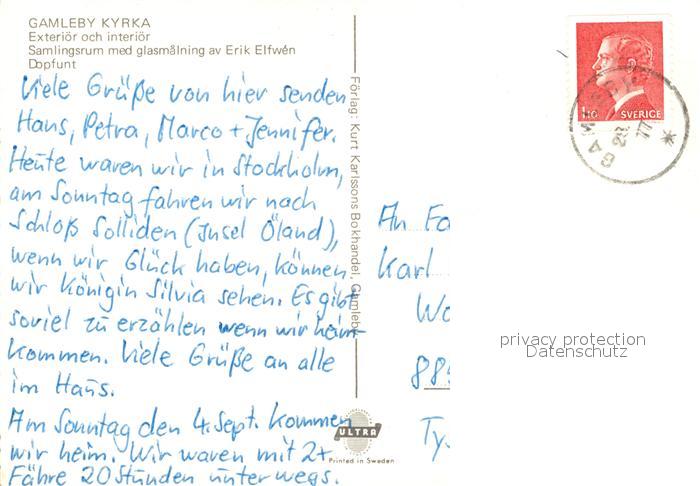 GAMLEBY KYRKA
Exteriör och interiör
Samlingsrum med glasmålning av Erik Elfwén
Dopfunt
Viele Grüße von hier senden
Hans, Petra, Marco + Jennifer.
Heute waren wir in Stockholm,
am Sonntag fahren wir nach
Schloß Solliden (Insel Öland),
wenn wir Glück haben, können
wir Königin Silvia sehen. Es gibt
soviel zu erzählen wenn wir heim-
kommen. Viele Grüße an alle
im Haus.
Am Sonntag den 4. Sept. kommen
wir heim. Wir waren mit 2x
Fähre 20 Stunden unterwegs.
Förlag: Kurt Karlssons Bokhandel, Gamleby
ULTRA
Printed in Sweden
1.10 SVERIGE
77
An Fa
Karl
Wo
885
Ty
privacy protection
Datenschutz